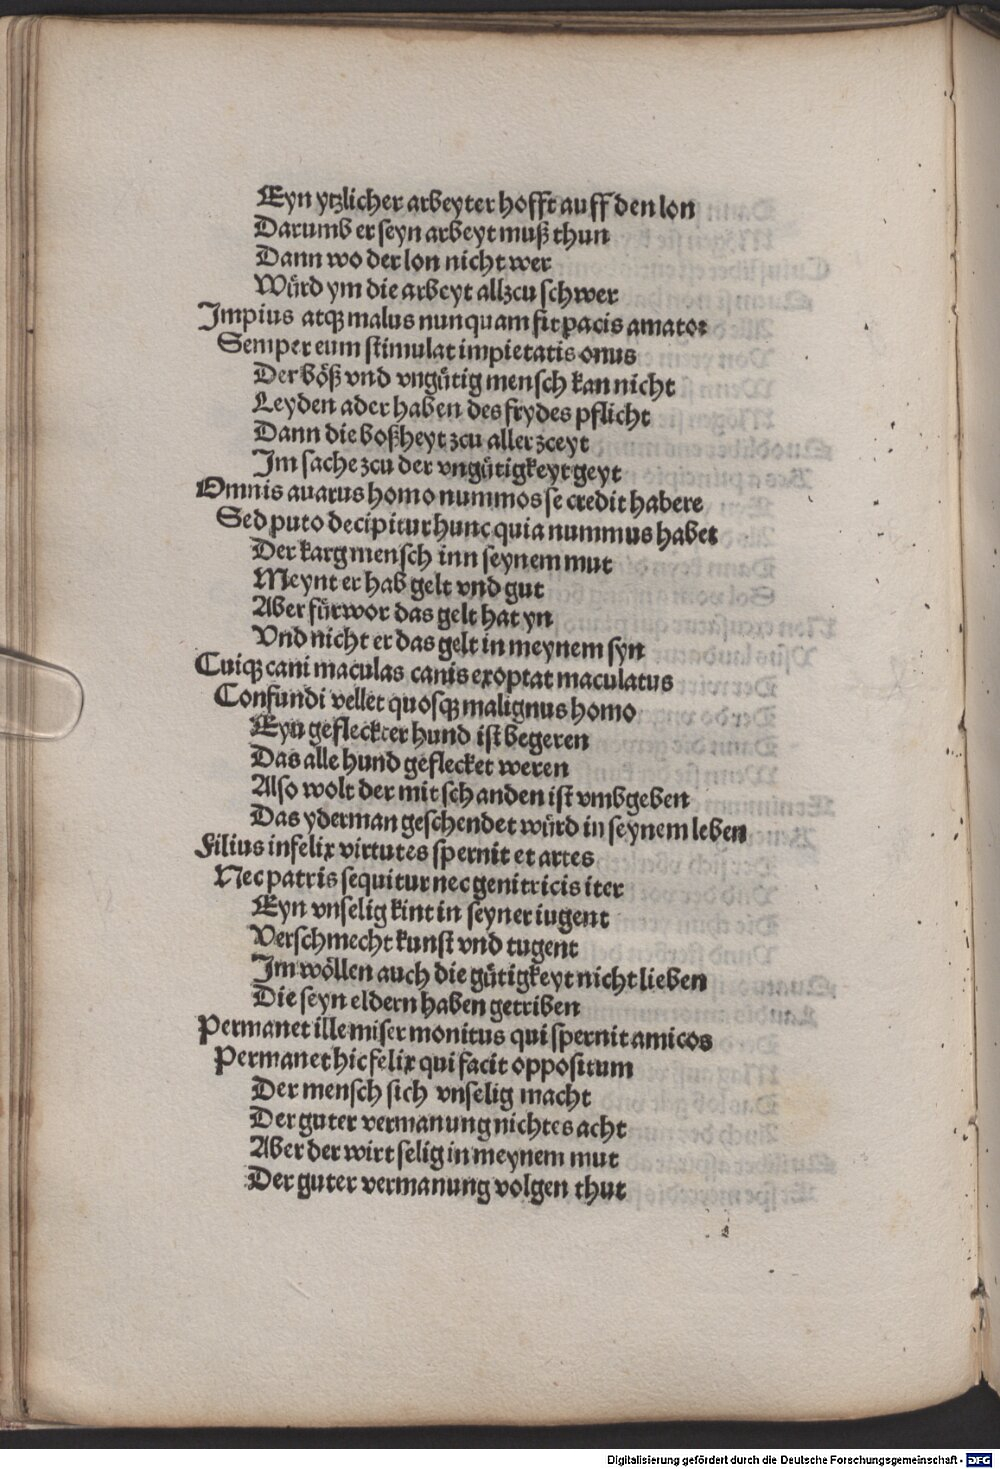 Eyn ytzlicher arbeyter hofft auff den lon
Darumb er seyn arbeyt muß thun
Dann wo der lon nicht wer
Wuͤrd ym die arbeyt allzcu schwer
Impius atqꝫ malus nunquam fit pacis amator
Semper eum stimulat impietatis onus
Der boͤß vnd vnguͤtig mensch kan nicht
Leyden ader haben des frydes pflicht
Dann die boßheyt zcu aller zceyt
Im sache zcu der vnguͤtigkeyt geyt
Omnis auarus homo nummos se credit habere
Sed puto decipitur hunc quia nummus habet
Der karg mensch inn seynem mut
Meynt er hab gelt vnd gut
Aber fuͤrwor das gelt hat yn
Vnd nicht er das gelt in meynem syn
Cuiqꝫ cani maculas canis exoptat maculatus
Confundi vellet quosqꝫ malignus homo
Eyn gefleckter hund ist begeren
Das alle hund geflecket weren
Also wolt der mit schanden ist vmbgeben
Das yderman geschendet wuͤrd in seynem leben
Filius infelix virtutes spernit et artes
Nec patris sequitur nec genitricis iter
Eyn vnselig kint in seyner iugent
Verschmecht kunst vnd tugent
Im woͤllen auch die guͤtigkeyt nicht lieben
Die seyn eldern haben getriben
Permanet ille miser monitus qui spernit amicos
Permanet hic felix qui facit oppositum
Der mensch sich vnselig macht
Der guter vermanung nichtes acht
Aber der wirt selig in meynem mut
Der guter vermanung volgen thut
Digitalisierung gefördert durch die Deutsche Forschungsgemeinschaft - DFG